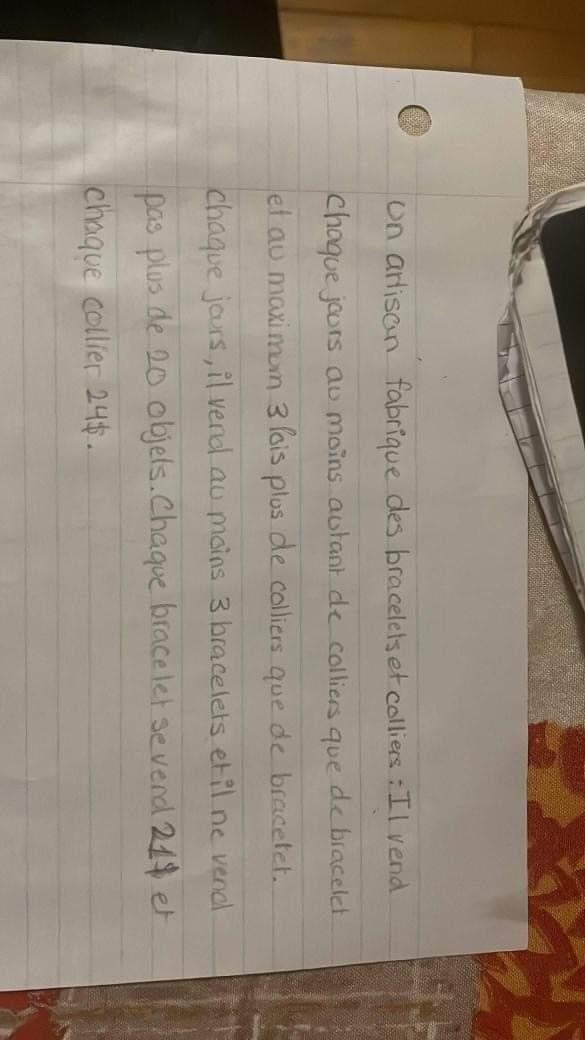 un artisan fabrique des bracelets et colliers : Il vend
chaque jours au moins autant de colliers que de bracelet
et au maximum 3 fois plus de colliers que de bracelet.
chaque jours, il vend au moins 3 bracelets et il ne vend
pas plus de 20 objets. Chaque bracelet se vend 21$ et
chaque collier 24$.